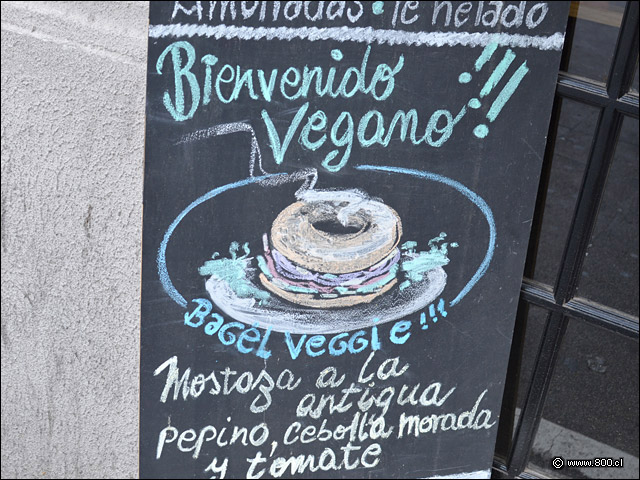 Limonadas • Te helado
Bienvenido
Vegano!!!
Bagel Veggie!!!
Mostaza a la
antigua
pepino, cebolla morada
y tomate
© www.800.cl